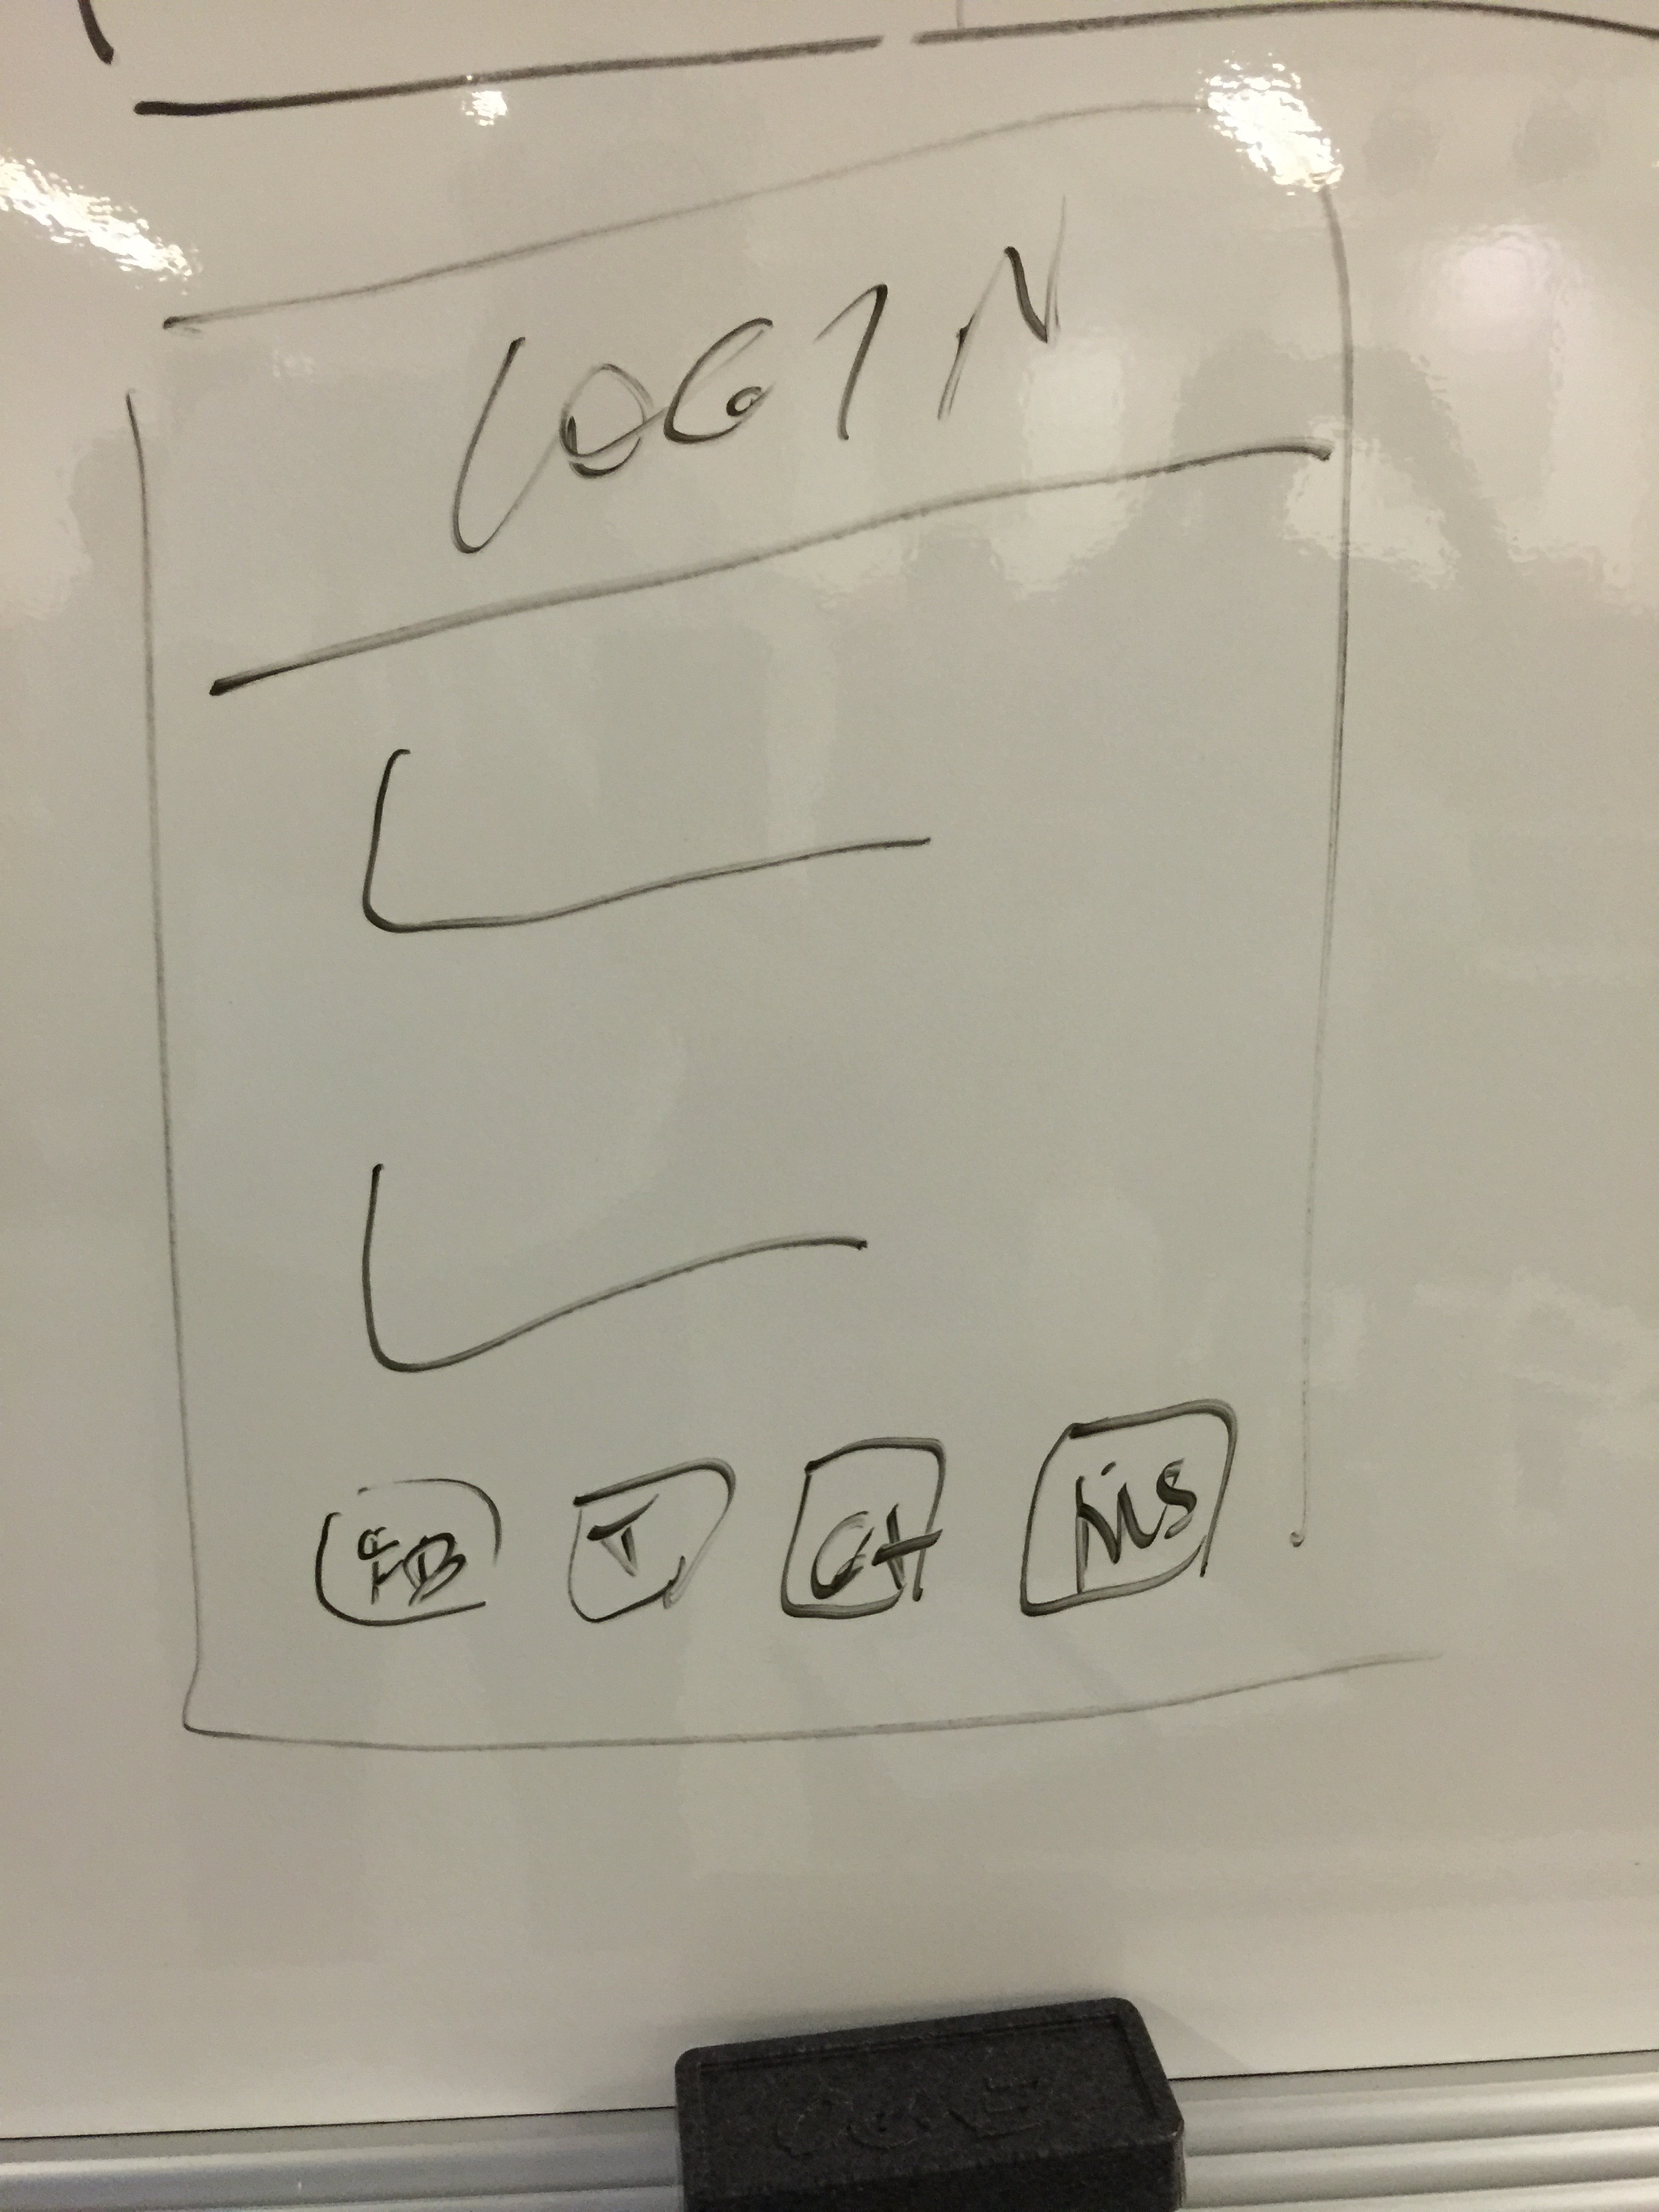 LOGIN
FB T G+ MS